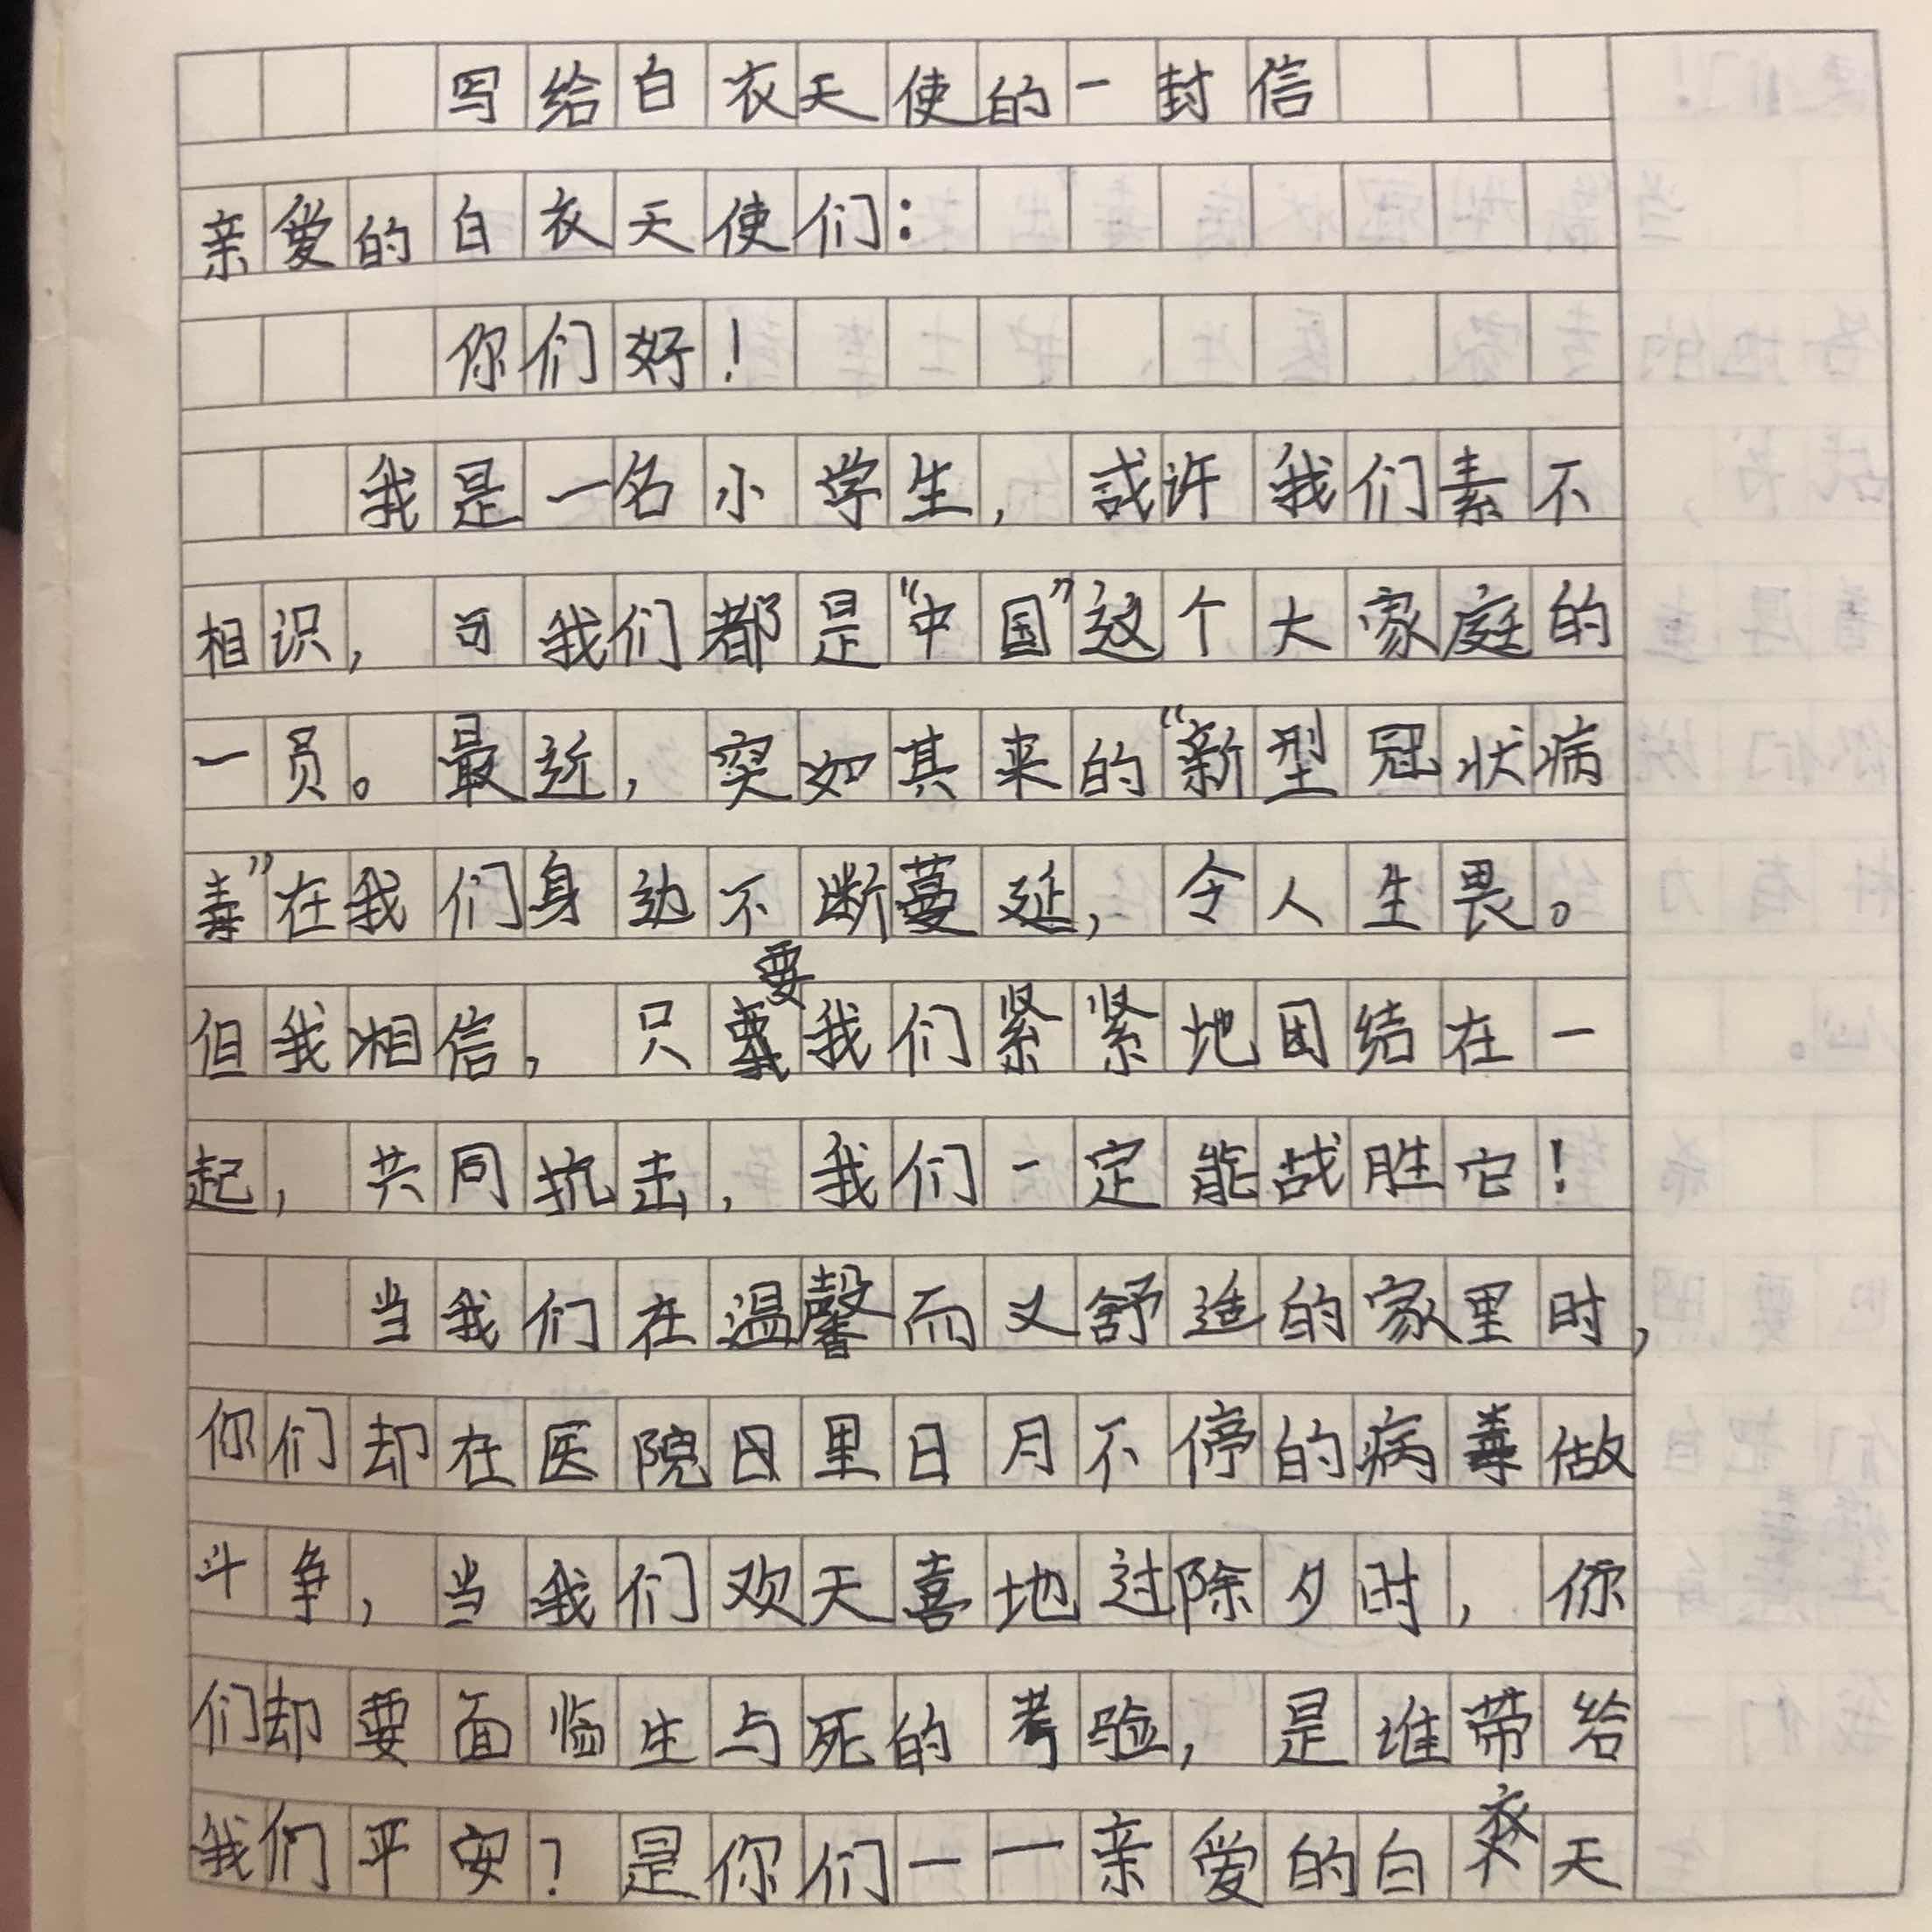 写给白衣天使的一封信
亲爱的白衣天使们：
你们好！
我是一名小学生，或许我们素不
相识，可我们都是“中国”这个大家庭的
一员。最近，突如其来的“新型冠状病
毒”在我们身边不断蔓延，令人生畏。
但我相信，只要我们紧紧地团结在一
起，共同抗击，我们一定能战胜它！
当我们在温馨而又舒适的家里时，
你们却在医院日里日月不停的病毒做
斗争，当我们欢天喜地过除夕时，你
们却要面临生与死的考验，是谁带给
我们平安？是你们——亲爱的白衣天